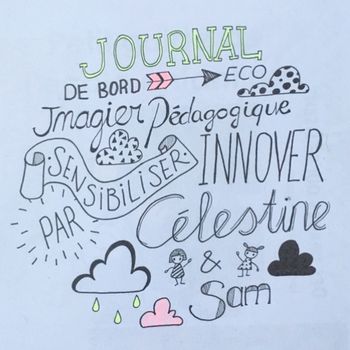 JOURNAL
DE BORD ECO
Imagier Pédagogique
SENSIBILISER INNOVER
PAR Célestine
&
Sam